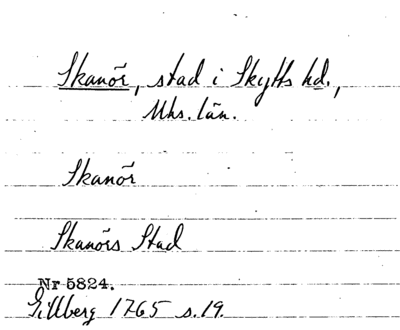 Skanör, stad i Skytts hd.,
Mhs. län.
Skanör
Skanörs Stad
Nr 5824.
Gillberg 1765 s. 19.